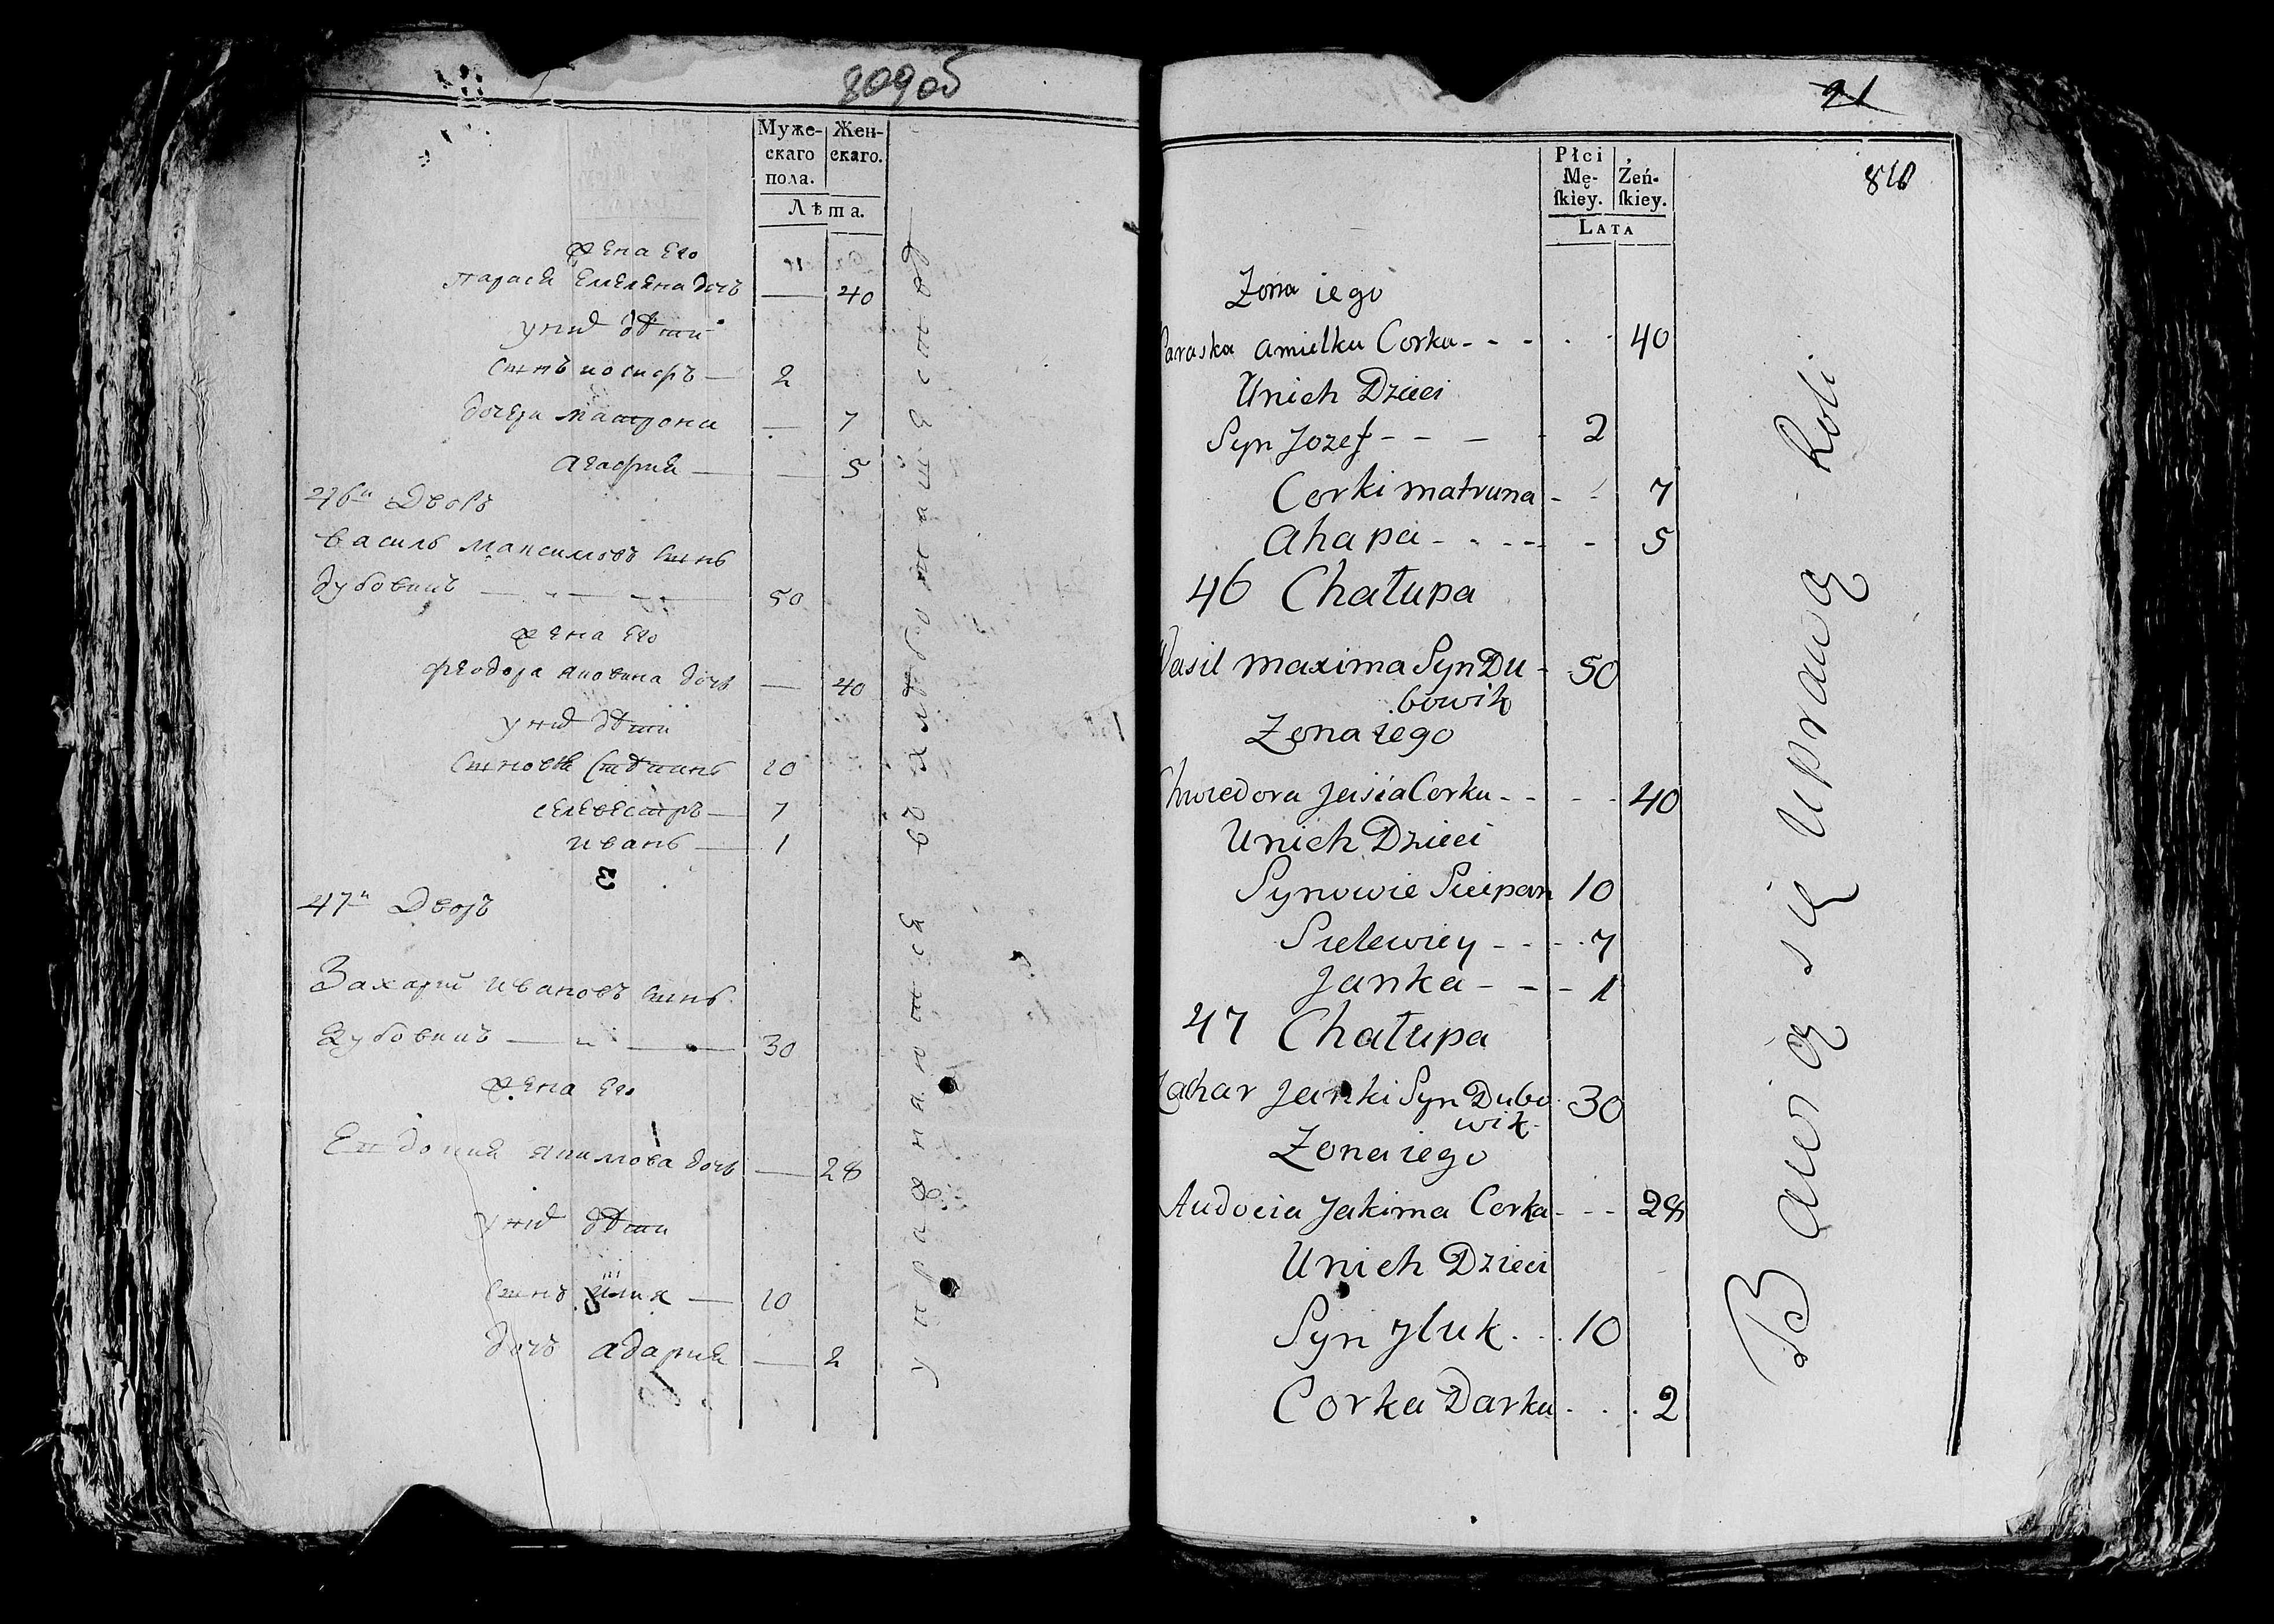 809об
Муже- Жен-
скаго скаго.
пола.
Лѣта.
жена его
Парася Емеляна дочь — 40
у них дѣти
сынъ иосифъ — 2
дочери матрона — 7
агафия — 5
46й Дворъ
василь максимовъ сынъ
дубовикъ — 50
жена его
феодора яновина дочь — 40
у них дѣти
сыновья степанъ 10
селевестръ — 7
иванъ — 1
3
47й Дворъ
Захарий ивановъ сынъ
дубовикъ — 30
жена его
Евдокия якимова дочь — 28
у них дѣти
сынъ илия — 10
дочь адария — 2
упражняются в хлебопашестве
21
810
Płci
Mę- Żeń-
ſkiey. ſkiey.
LATA
Zona iego
Paraska amielku Corka - - - 40
Unich Dzieci
Syn Jozef - - - 2
Corki matruna - - 7
ahapa - - - - 5
46 Chałupa
Wasil maxima Syn Du- 50
bowik
Zona iego
Chwiedora Jasia Corka - - - 40
Unich Dzieci
Synowie Sciepan 10
Sielewiey - - - 7
Janka - - - 1
47 Chałupa
Zachar Janki Syn Dubo 30
wik
Zona iego
Audocia Jakima Corka - - - 28
Unich Dzieci
Syn Jluk . . 10
Corka Darka . . . 2
Bawią się uprawą Roli